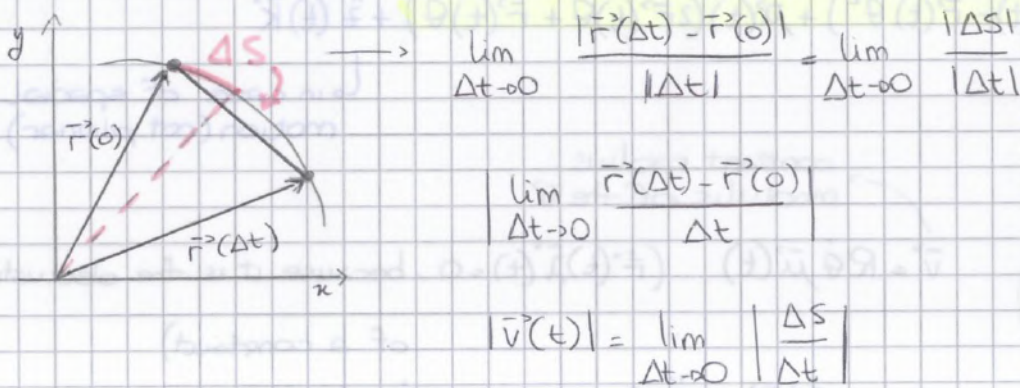 y
ΔS
r⃗(0)
r⃗(Δt)
x
lim Δt→0 |r⃗(Δt) - r⃗(0)| / |Δt| = lim Δt→0 |ΔS| / |Δt|
| lim Δt→0 (r⃗(Δt) - r⃗(0)) / Δt |
|v⃗(t)| = lim Δt→0 | ΔS / Δt |